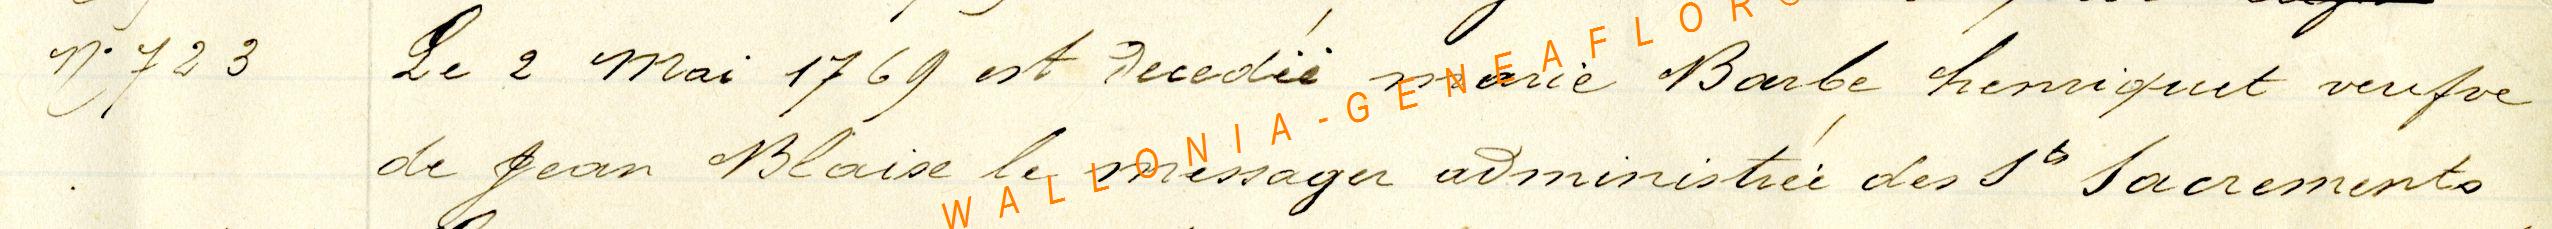 N° 723 Le 2 Mai 1769 est Decedée marie Barbe henriquet veufve
de Jean Blaise le messager administrée des Sts Sacrements
WALLONIA-GENEAFLOR